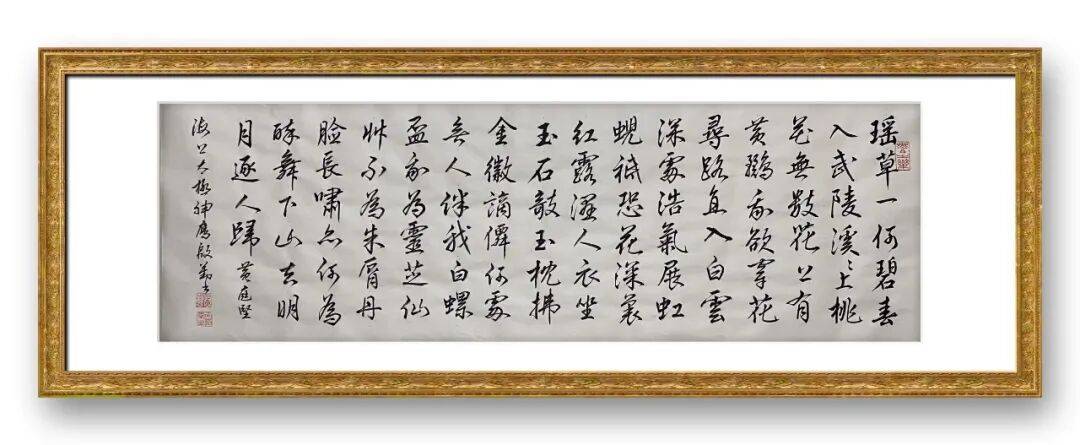 瑶草一何碧春
入武陵溪〻上桃
花無數花上有
黄鸝我欲穿花
尋路直入白雲
深處浩氣展虹
蜺祇恐花深裏
紅露濕人衣坐
玉石敧玉枕拂
金徽謫僊何處
無人伴我白螺
盃我為靈芝仙
艸不為朱脣丹
臉長嘯亦何為
醉舞下山去明
月逐人歸 黄庭堅
海上太極神鷹殷